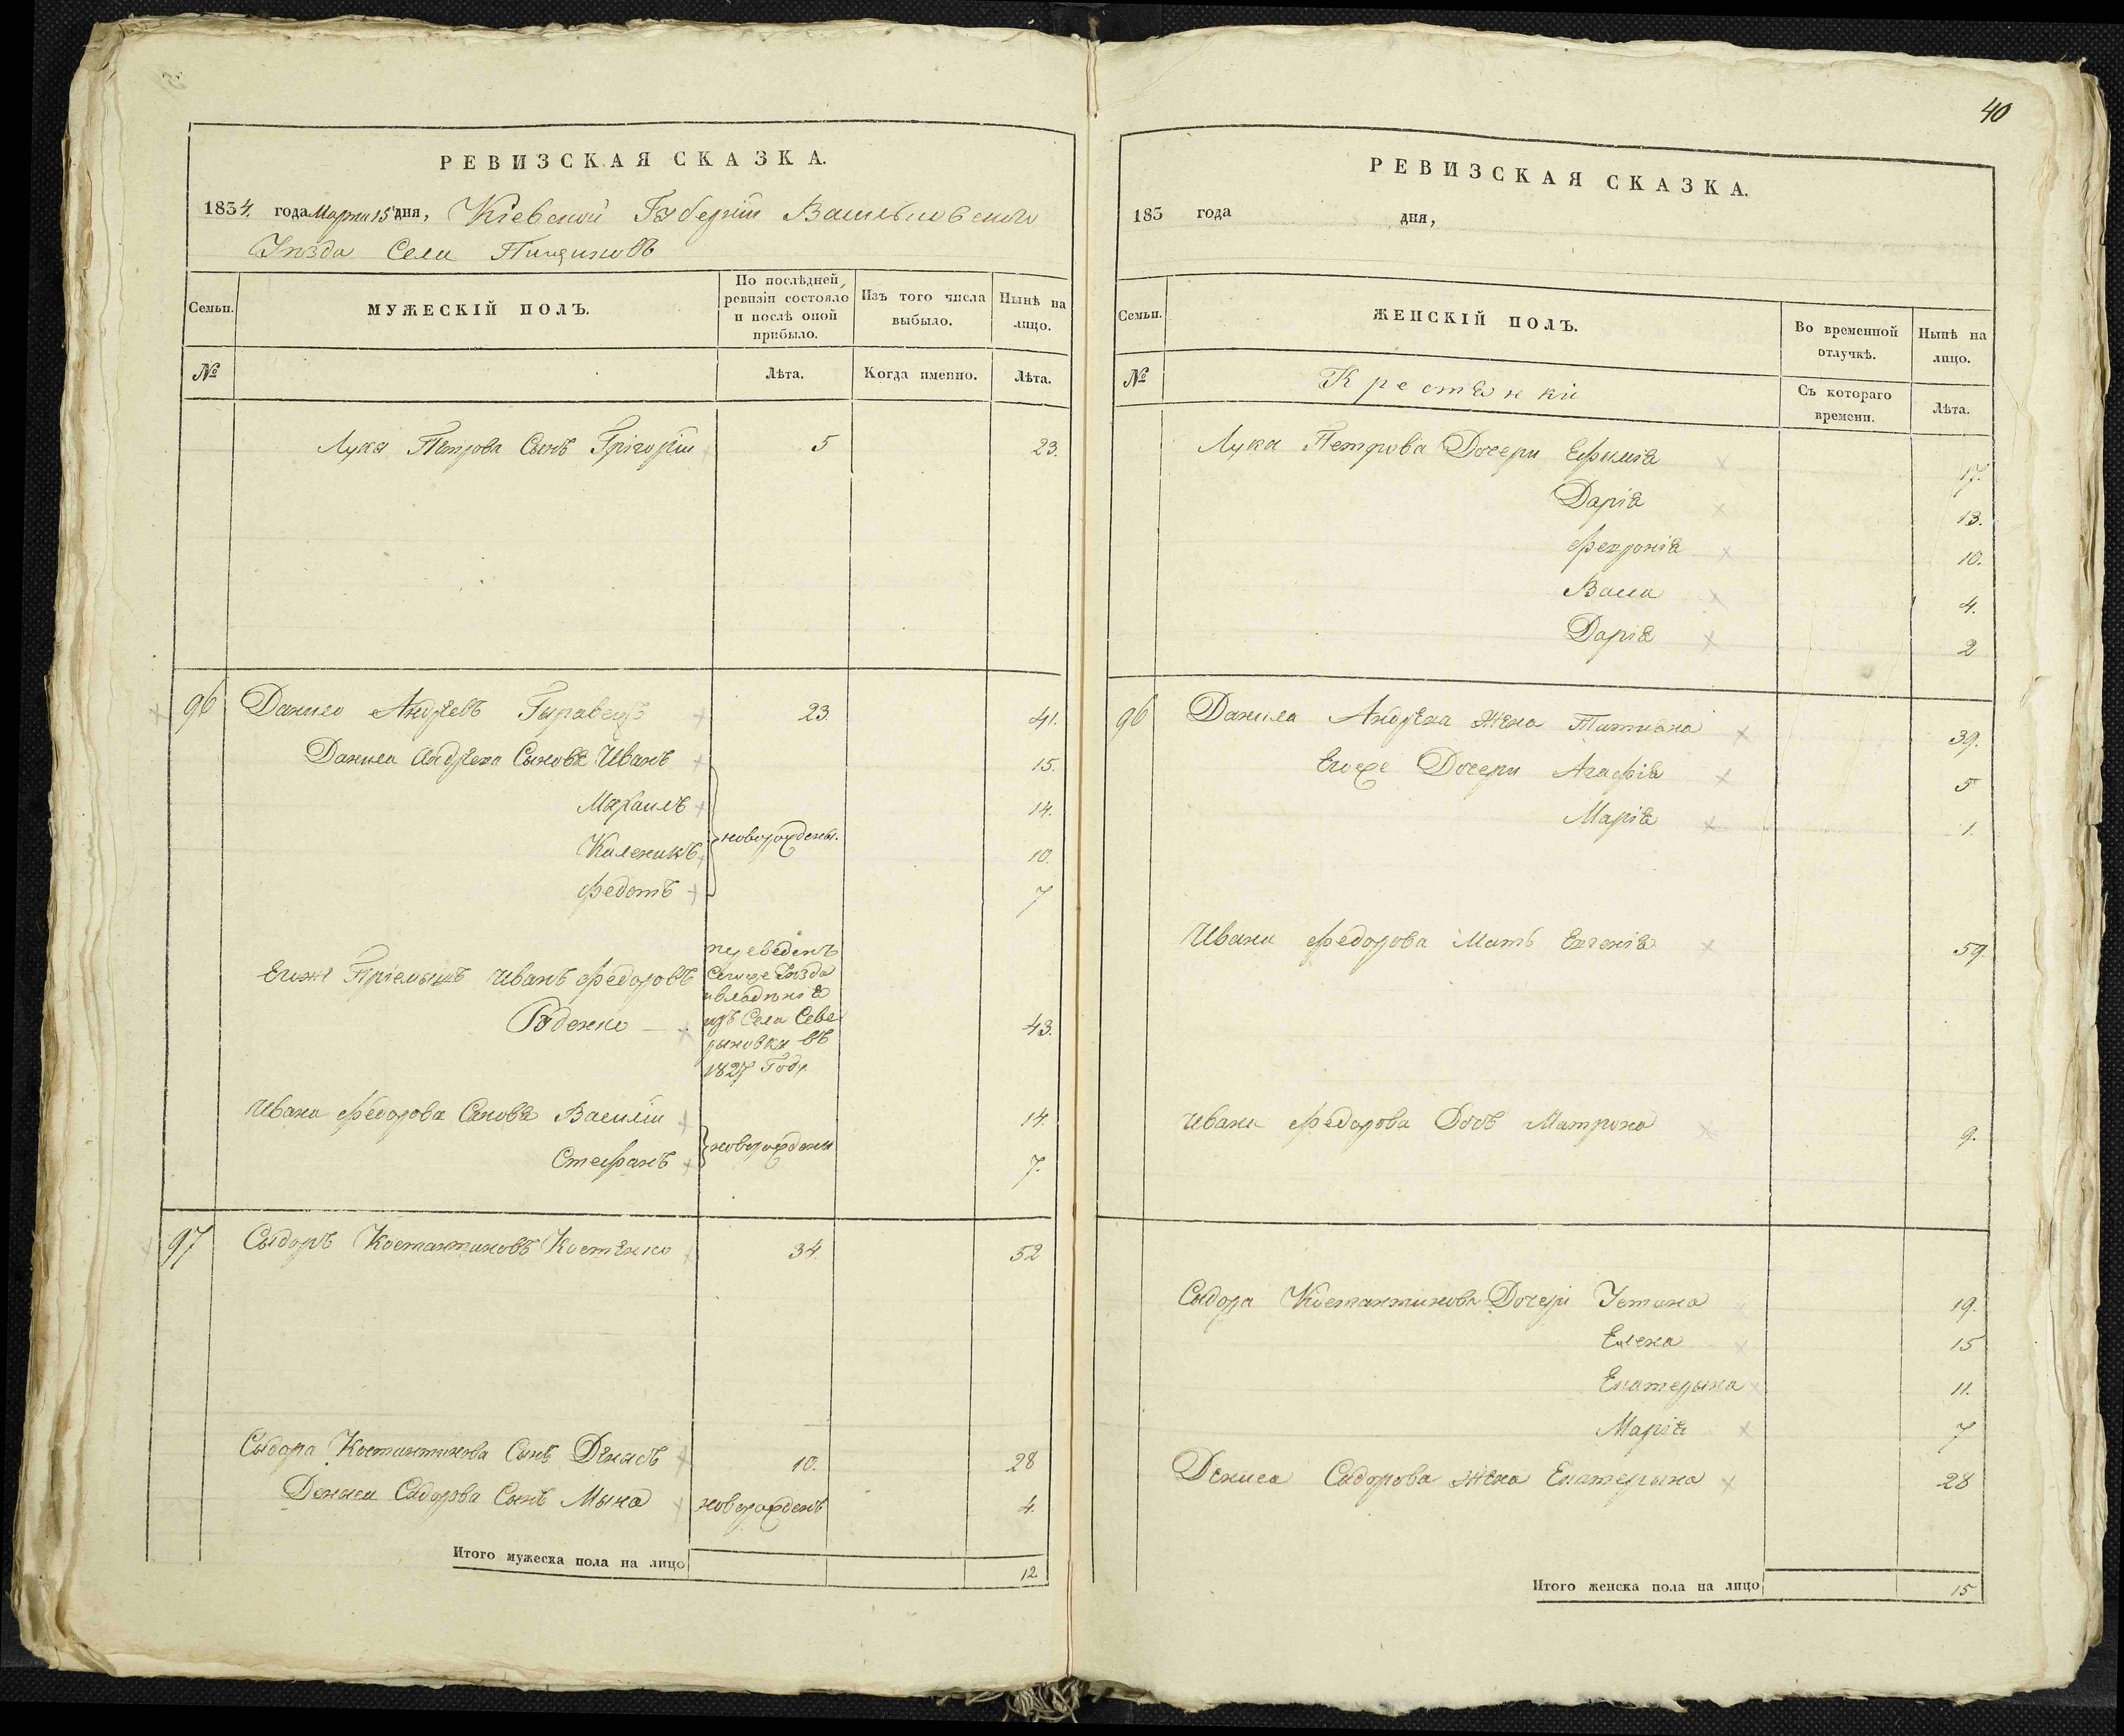 РЕВИЗСКАЯ СКАЗКА.
1834. года Марта 15 дня, Кіевской Губерніи Васильковскаго
Уѣзда Села Пищиковъ
Семьи.
МУЖЕСКІЙ ПОЛЪ.
По послѣдней, ревизіи состояло и послѣ оной прибыло.
Изъ того числа выбыло.
Нынѣ на лицо.
№
Лѣта.
Когда именно.
Лѣта.
Луки Петрова Сынъ Григорій 5 23.
96 Данило Андреевъ 23. 41.
Данила Андреева Сыновья Иванъ 15.
Михаилъ 14.
Каленикъ 10.
новорождены.
Федотъ 7
переведенъ
Егоже Пріемышъ Иванъ Федоровъ сегоже Уѣзда
и владѣнія
Руденко изъ Села Севе 43.
рыновки въ
1827 Году
Ивана Федорова Сыновья Василій 14.
новорождены
Стефанъ 7.
97 Сыдоръ Костантиновъ Костенко 34. 52
Сыдора Костантинова Сынъ Денисъ 10. 28
Дениса Сыдорова Сынъ Мына новорожденъ 4.
Итого мужеска пола на лицо 12.
40
РЕВИЗСКАЯ СКАЗКА.
183 года дня,
Семьи.
ЖЕНСКІЙ ПОЛЪ.
Во временной отлучкѣ.
Нынѣ на лицо.
№
Крестянки
Съ котораго времени.
Лѣта.
Луки Петрова Дочери Ефимія 17.
Дарія 13.
Февронія 10.
Васса 4.
Дарія 2
96 Данила Андреева Жена Татияна 39.
Егоже Дочери Агафія 5
Марія 1.
Ивана Федорова Мать Евгенія 59.
Ивана Федорова Дочь Матрона 9.
Сыдора Костантинова Дочери Устина 19.
Елена 15
Екатерына 11.
Марія 7
Дениса Сыдорова Жена Екатерына 28
Итого женска пола на лицо 15